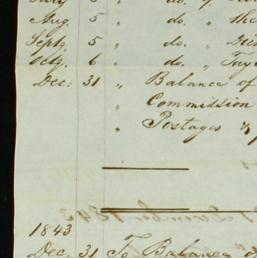 Aug. 5 " do. " the
Septr. 5 " do. "
Octr. 6 " do. " Tay
Dec: 31 " Balance of
" Commission
" Postages &
1843
Dec. 31 To Balance